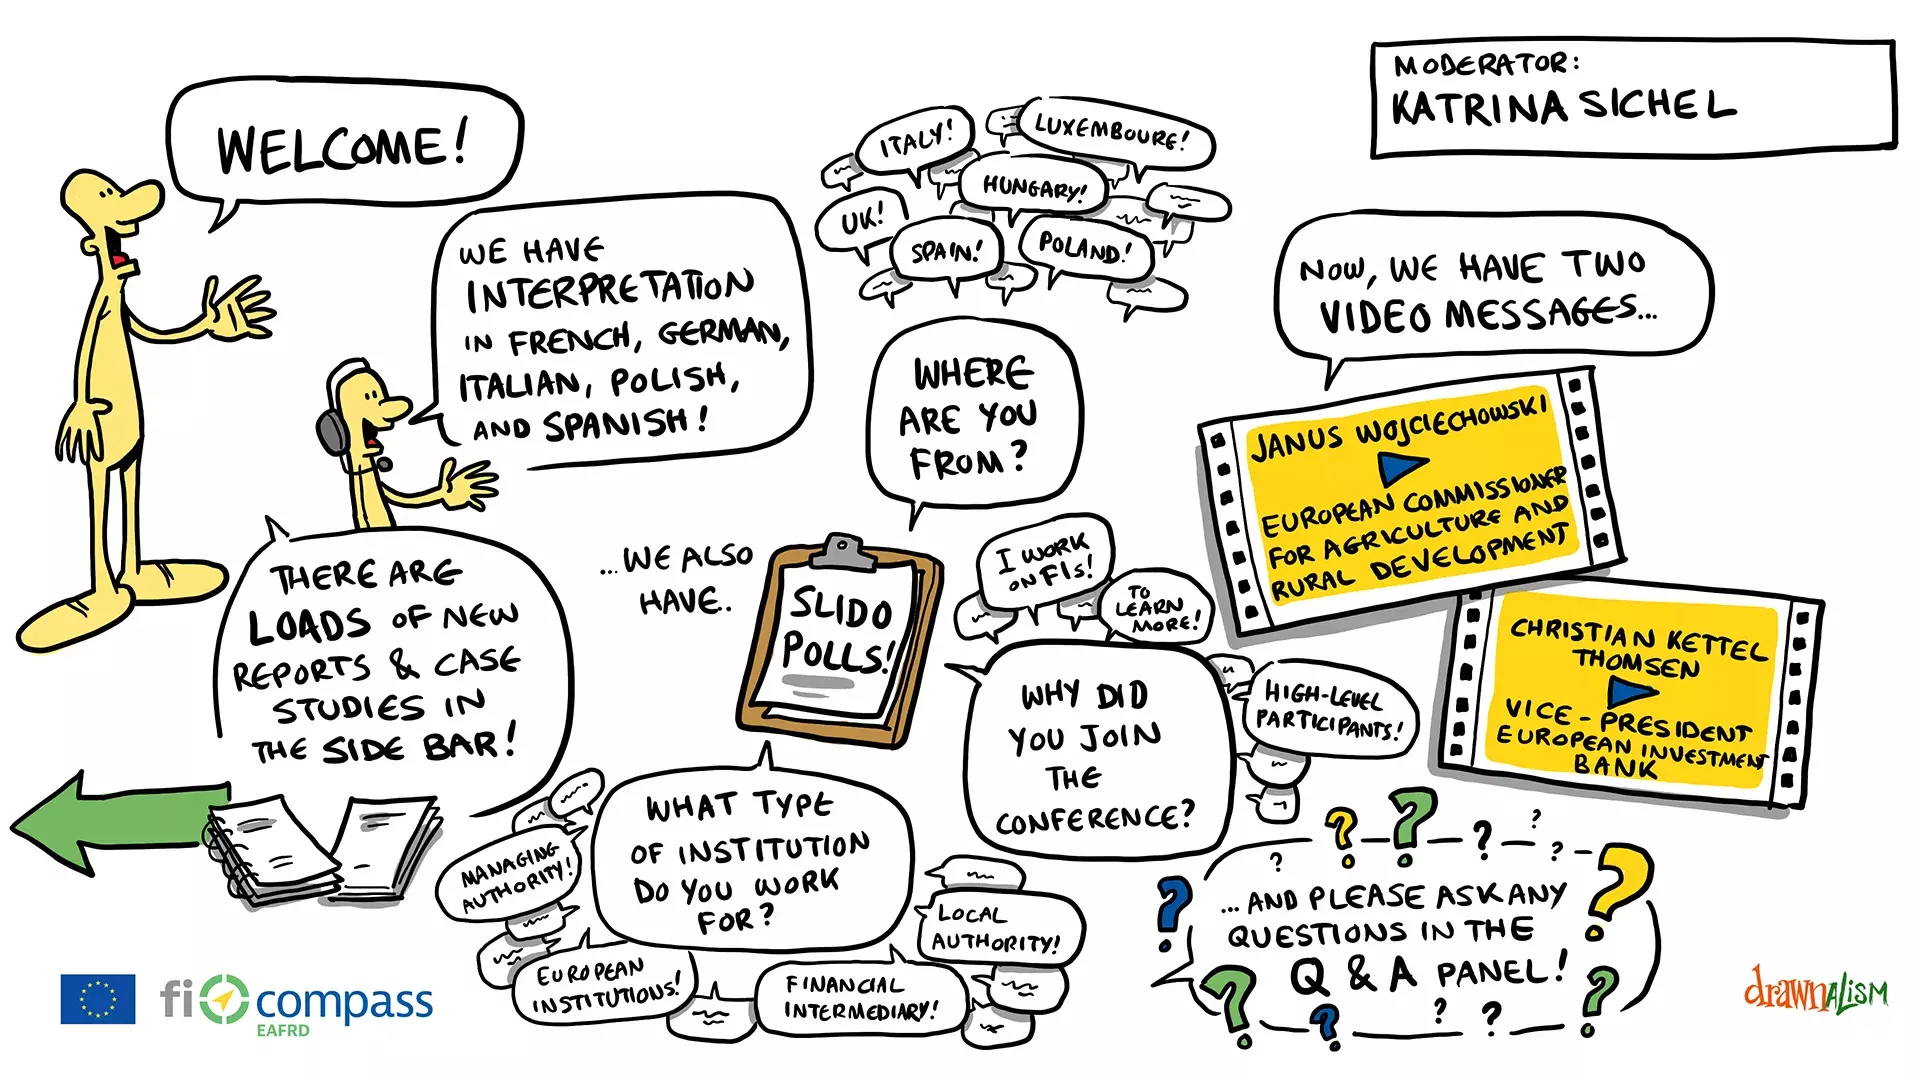 MODERATOR:
KATRINA SICHEL
WELCOME!
WE HAVE
INTERPRETATION
IN FRENCH, GERMAN,
ITALIAN, POLISH,
AND SPANISH!
THERE ARE
LOADS OF NEW
REPORTS & CASE
STUDIES IN
THE SIDE BAR!
...WE ALSO
HAVE..
SLIDO
POLLS!
ITALY!
LUXEMBOURE!
HUNGARY!
UK!
SPAIN!
POLAND!
WHERE
ARE YOU
FROM?
I WORK
ON FIs!
TO
LEARN
MORE!
HIGH-LEVEL
PARTICIPANTS!
WHY DID
YOU JOIN
THE
CONFERENCE?
WHAT TYPE
OF INSTITUTION
DO YOU WORK
FOR?
MANAGING
AUTHORITY!
EUROPEAN
INSTITUTIONS!
FINANCIAL
INTERMEDIARY!
LOCAL
AUTHORITY!
NOW, WE HAVE TWO
VIDEO MESSAGES...
JANUS WOJCIECHOWSKI
EUROPEAN COMMISSIONER
FOR AGRICULTURE AND
RURAL DEVELOPMENT
CHRISTIAN KETTEL
THOMSEN
VICE-PRESIDENT
EUROPEAN INVESTMENT
BANK
...AND PLEASE ASK ANY
QUESTIONS IN THE
Q & A PANEL!
fi compass
EAFRD
drawnalism